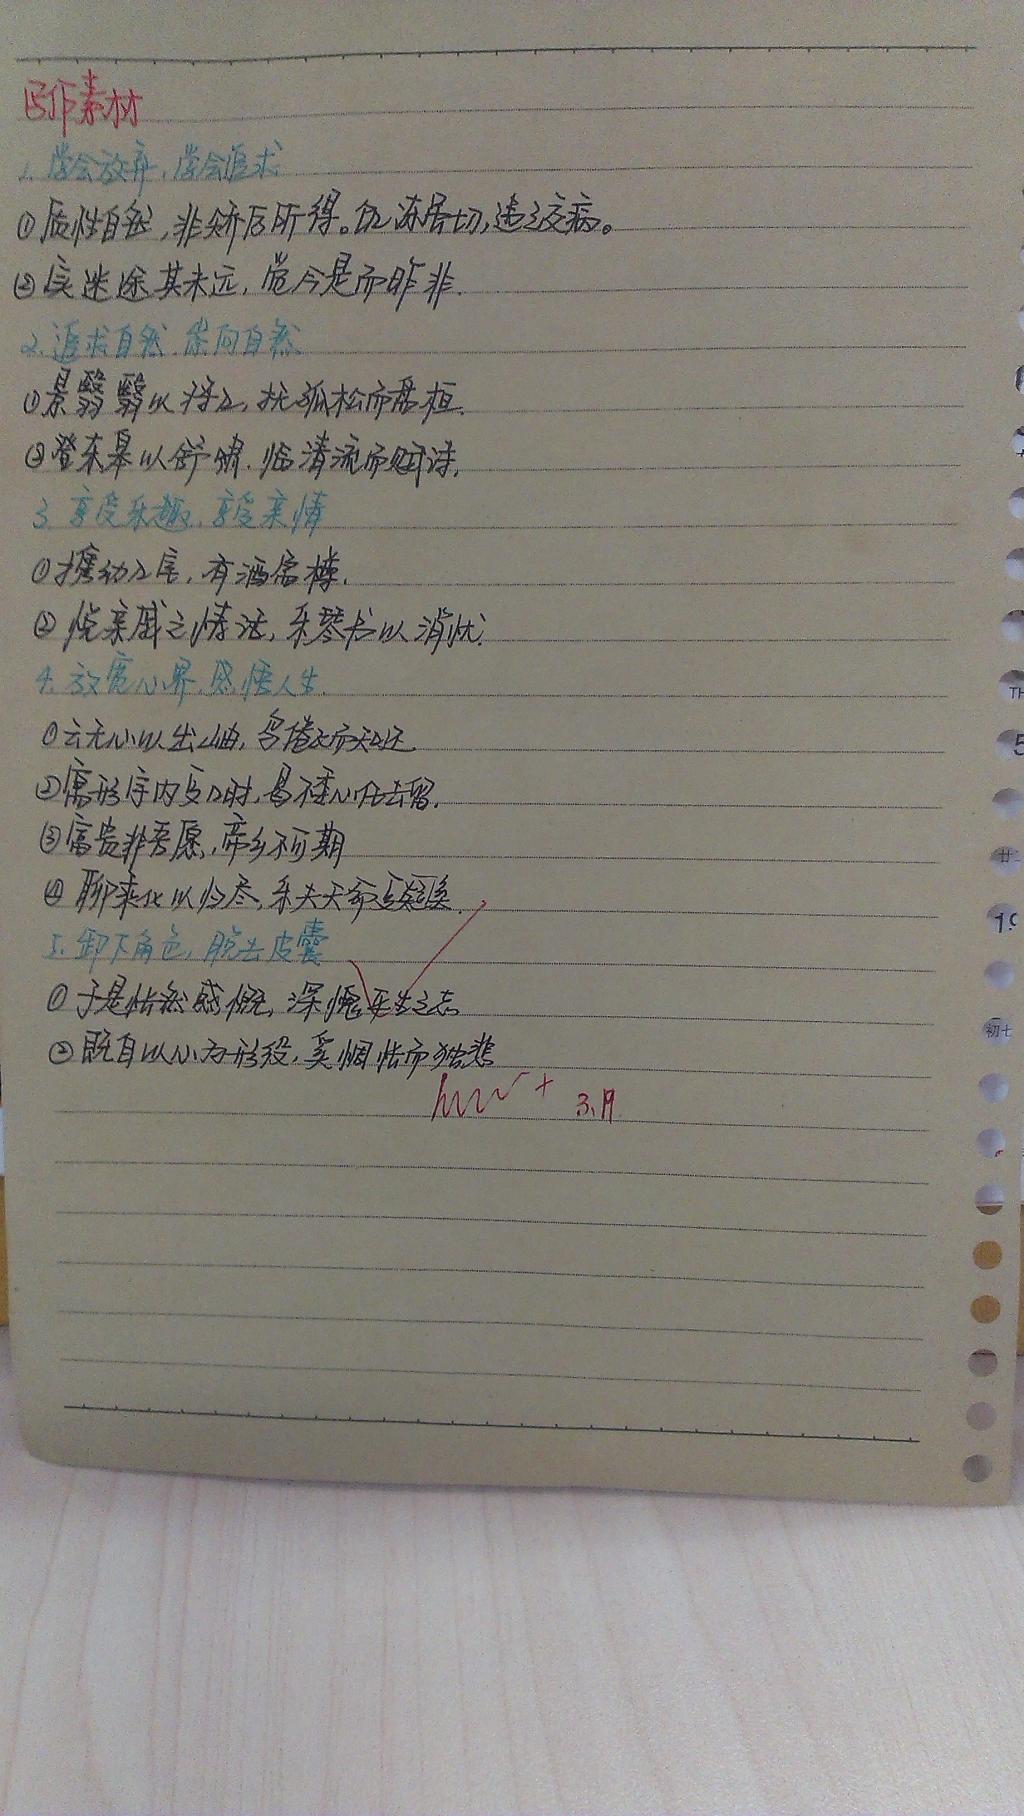 写作素材
1. 学会放弃,学会追求
①质性自然,非矫厉所得。饥冻虽切,违己交病。
②实迷途其未远,觉今是而昨非.
2. 追求自然.崇向自然
①景翳翳以将入,抚孤松而盘桓.
②登东皋以舒啸.临清流而赋诗.
3. 享受乐趣.享受亲情
①携幼入室,有酒盈樽.
②悦亲戚之情话,乐琴书以消忧.
4. 放宽心界.感悟人生.
①云无心以出岫,鸟倦飞而知还
②寓形宇内复几时,曷不委心任去留.
③富贵非吾愿,帝乡不可期
④聊乘化以归尽,乐夫天命复奚疑.
5. 卸下角色,脱去皮囊
①于是怅然感慨,深愧平生之志
②既自以心为形役,奚惆怅而独悲
3.19
TH
5
廿二
19
初七